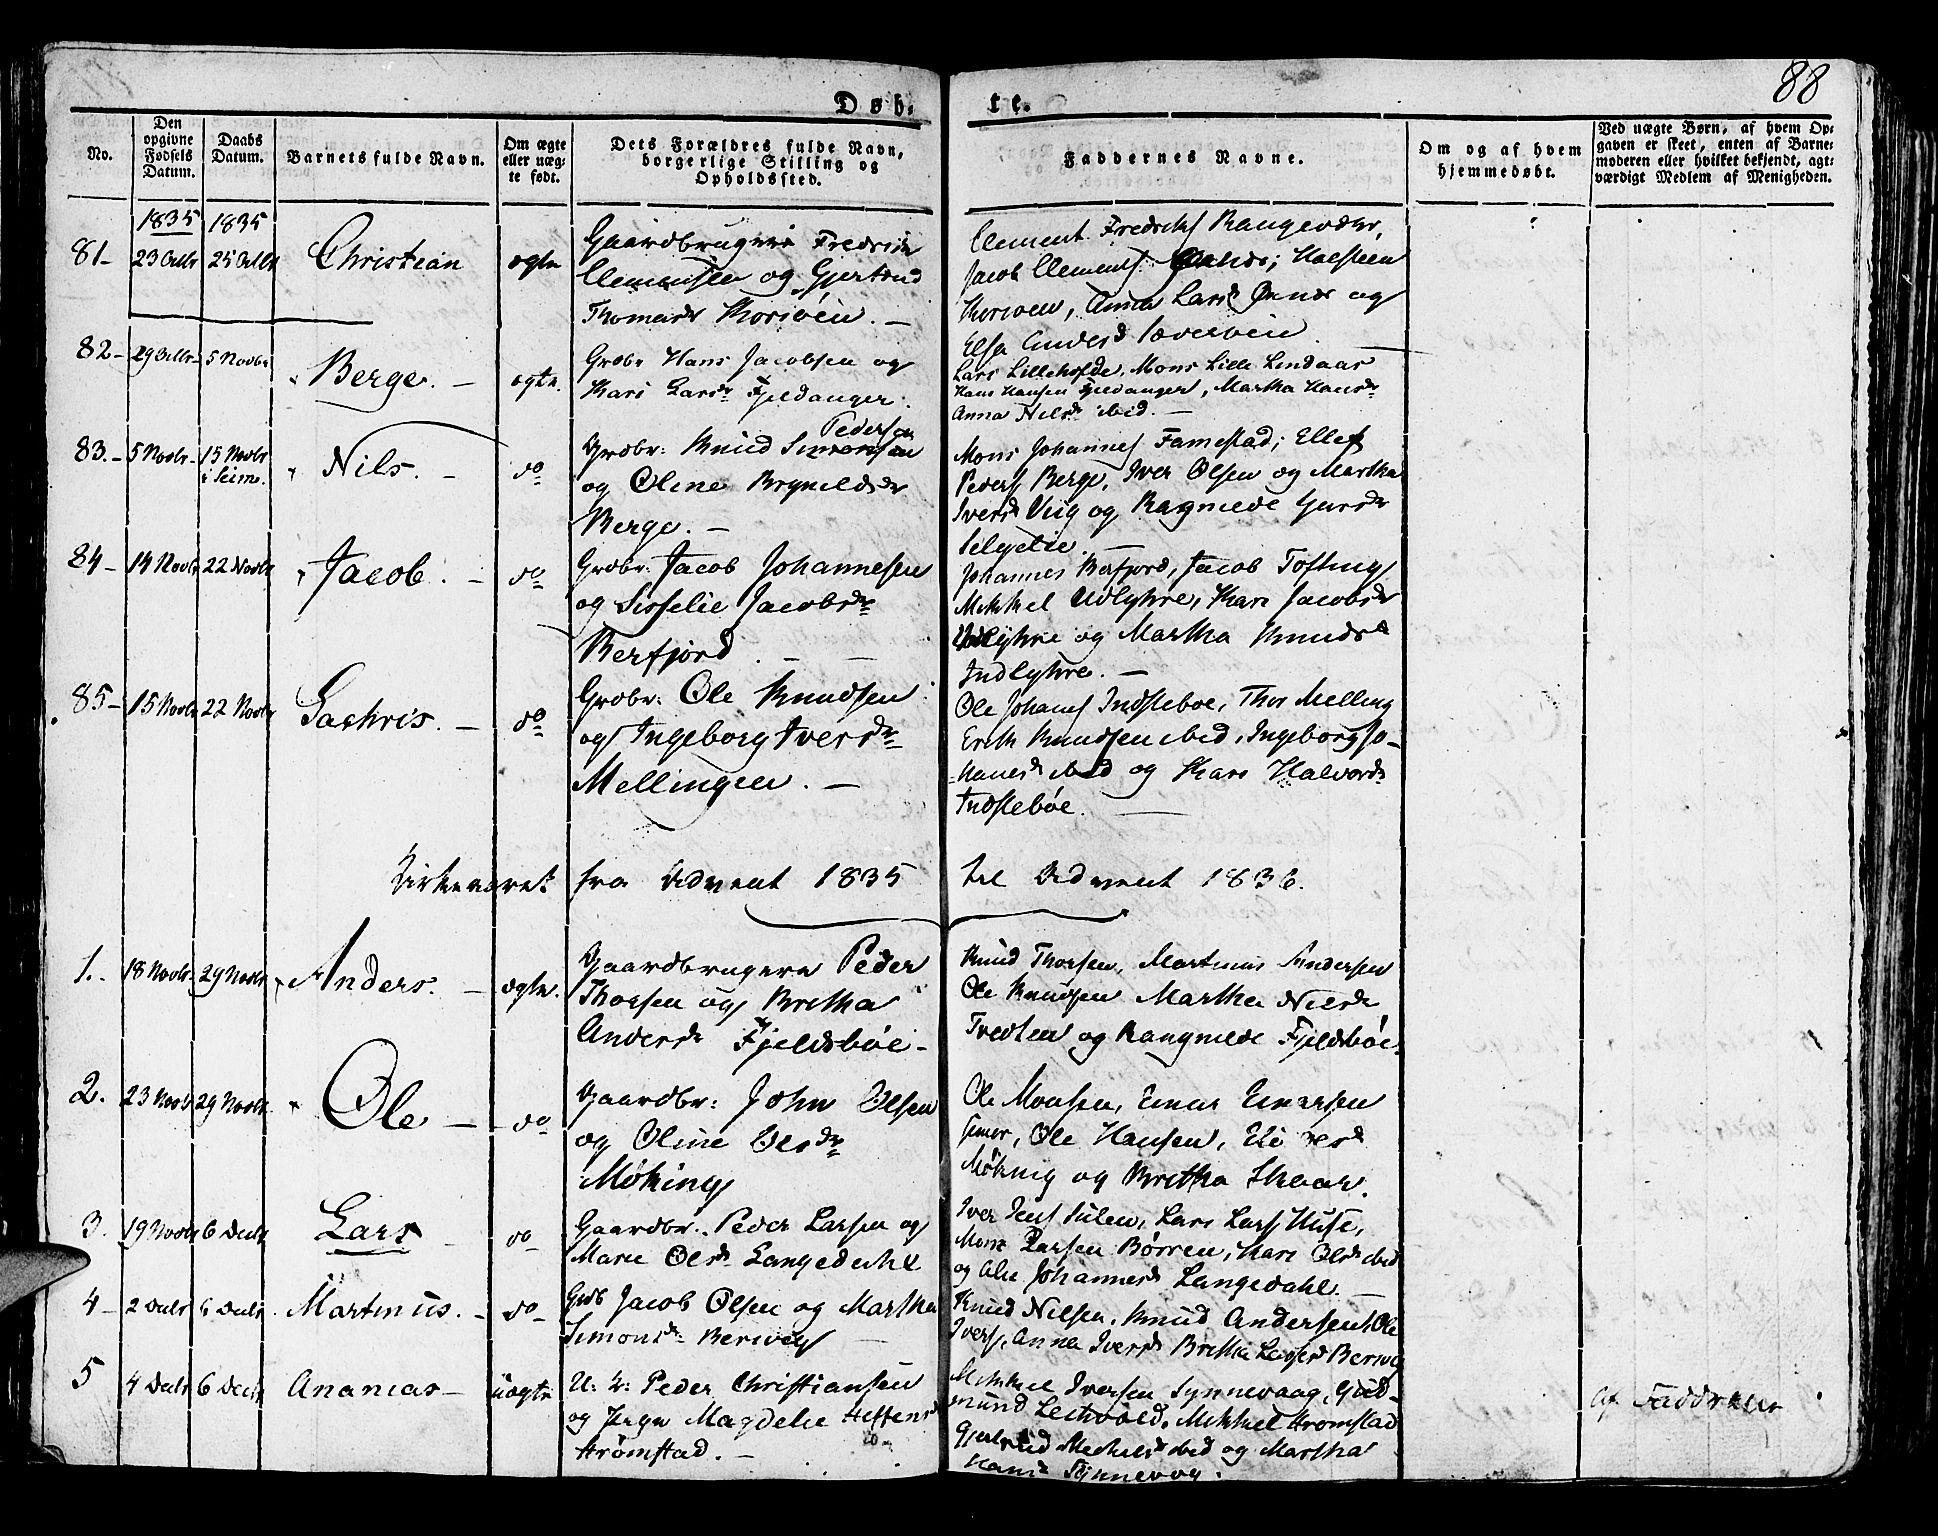 88
Døb-
te.
No.
Den opgivne Fødsels Datum.
Daabs Datum.
Barnets fulde Navn.
Om ægte eller uæg-te født.
Dets Forældres fulde Navn, borgerlige Stilling og Opholdssted.
Faddernes Navne.
Om og af hvem hjemmedøbt.
Ved uægte Børn, af hvem Op-gaven er skeet, enten af Barne-moderen eller hvilket bekjendt, agt-værdigt Medlem af Menigheden.
1835 1835
81- 23 Octbr 25 Octbr Christian ægte
Gaardbruger Fredrik
Clemensen og Gjertrud
Thomasdr
Clement Fredriks
Jacob Clements
Anna Larsd og
82- 29 Octbr 5 Novbr Berge. - ægte.
Grdbr Hans Jacobsen og
Kari Larsdr Fjeldanger.
Mons Lille Lindaas
Hans Hansen Fjeldanger, Martha Hansdr
Anna Nilsdr ibid. -
83.- 5 Novbr- 15 Novbr i Seim. Nils. - do
Pedersen
Grdbr: Knud Simonsen
og Oline Brynildsdr
Berge. -
Mons Johannes Famestad; Ellef
Peders Berge, Iver Olsen og Martha
Iversdr Viig og Ragnilde
84- 14 Novbr 22 Novbr Jacob. - do
Grdbr: Jacob Johannesen
og Sisselie Jacobsdr
Berfjord. - -
Johannes Berfjord, Jacob Tofting
Mikkel Udlykre, Kari Jacobsdr
Udlykre og Martha Knudsd
Indlykre. -
85- 15 Novbr 22 Novbr Sachris. - do
Grdbr: Ole Knudsen
og Ingeborg Iversdr
Mellingen. -
Ole Johans Indstebøe, Thor Melling
Erik Knudsen ibid, Ingeborg Jo-
hanesdr ibid og Kari Halvordr
Indstebøe.
Kirkeaaret fra Advent 1835 til Advent 1836.
1.- 18 Novbr 29 Novbr Anders. - ægte.
Gaardbrugere Peder
Thorsen og Britha
Andersdr Fjeldsbøe-
Knud Thorsen, Martinus Andersen
Ole Knudsen Martha Nilsdr
Tvedten og Rangnilde Fjeldsbøe.
2. 23 Novbr 29 Novbr Ole - do
Gaardbr: John Olsen
og Oline Olsdr
Møking
Ole Monsen, Einar Einarsen
Ole Hansen,
Møking og Britha Skaar.
3. 19 Novbr 6 Decbr Lars - do
Gaardbr. Peder Larsen og
Mari Olsdr Langedahl
Iver Jens Sulen, Lars Lars Huse,
Mons Larsen Børren, Kari Olsdr ibid
og Johannesdr Langedahl. -
4- 2 Decbr 6 Decbr Martinus. - do-
Grdb Jacob Olsen og Martha
Simonsdr
Knud Nilsen, Knud Andersen, Ole
Ivers, Anna Iversdr Britha Lassesdr
5 4 Decbr 6 Decbr Ananias - uægte
U: K: Peder Christiansen
og Magdelie
Strømstad. -
Mikkel Iversen Synnevaag, Gud-
mund Mikkel Strømstad
Gjertrud Mikkelsdr ibid og Martha
Hansdr Synnevog.
Af Fadderne